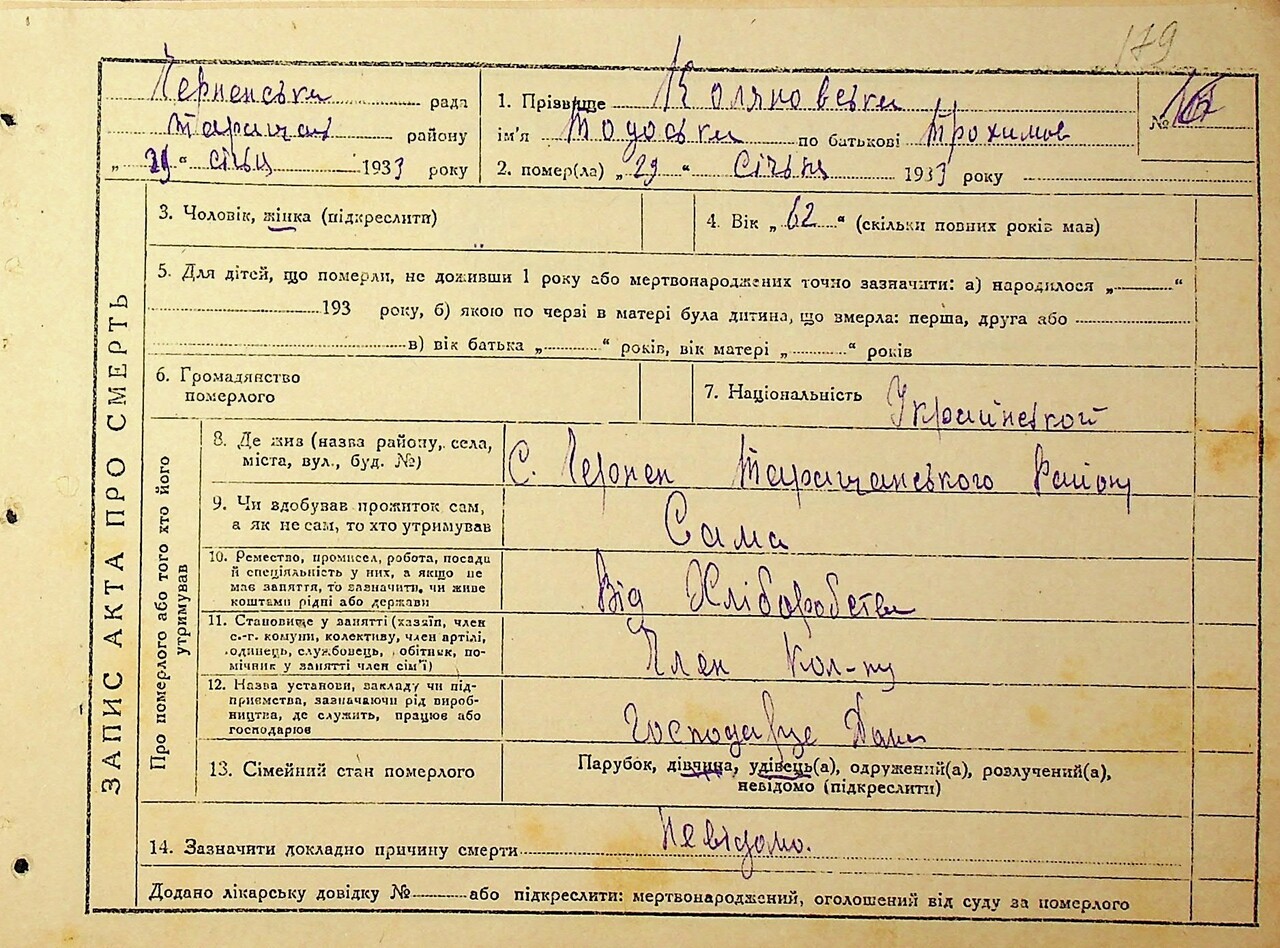 179
Черненська рада
Таращан району
„ 29 “ січня 1933 року
1. Прізвище Коляновська
ім'я Тодоська по батькові Трохимов
№
2. помер(ла) „ 29 “ Січня 1933 року
3. Чоловік, жінка (підкреслити)
4. Вік „ 62 “ (скільки повних років мав)
5. Для дітей, що померли, не доживши 1 року або мертвонароджених точно зазначити: а) народилося „ “
193 року, б) якою по черзі в матері була дитина, що вмерла: перша, друга або
в) вік батька „ “ років, вік матері „ “ років
6. Громадянство
померлого
7. Національність Українской
ЗАПИС АКТА ПРО СМЕРТЬ
Про померлого або того хто його
утримував
8. Де жив (назва району, села,
міста, вул., буд. №)
С. Чернен Таращанського Району
9. Чи здобував прожиток сам,
а як не сам, то хто утримував
Сама
10. Ремество, промисел, робота, посади
й спеціяльність у них, а якщо не
має заняття, то зазначити, чи живе
коштами рідні або держави
Від Хліборобства
11. Становище у занятті (хазяїн, член
с.-г. комуни, колективу, член артілі,
одинець, службовець, робітник, по-
мічник у занятті член сім'ї)
Член Кол-пу
12. Назва установи, закладу чи під-
приємства, зазначаючи рід вироб-
ництва, де служить, працює або
господарює
13. Сімейний стан померлого
Парубок, дівчина, удівець(а), одружений(а), розлучений(а),
невідомо (підкреслити)
14. Зазначити докладно причину смерти Невідомо.
Додано лікарську довідку № або підкреслити: мертвонароджений, оголошений від суду за померлого